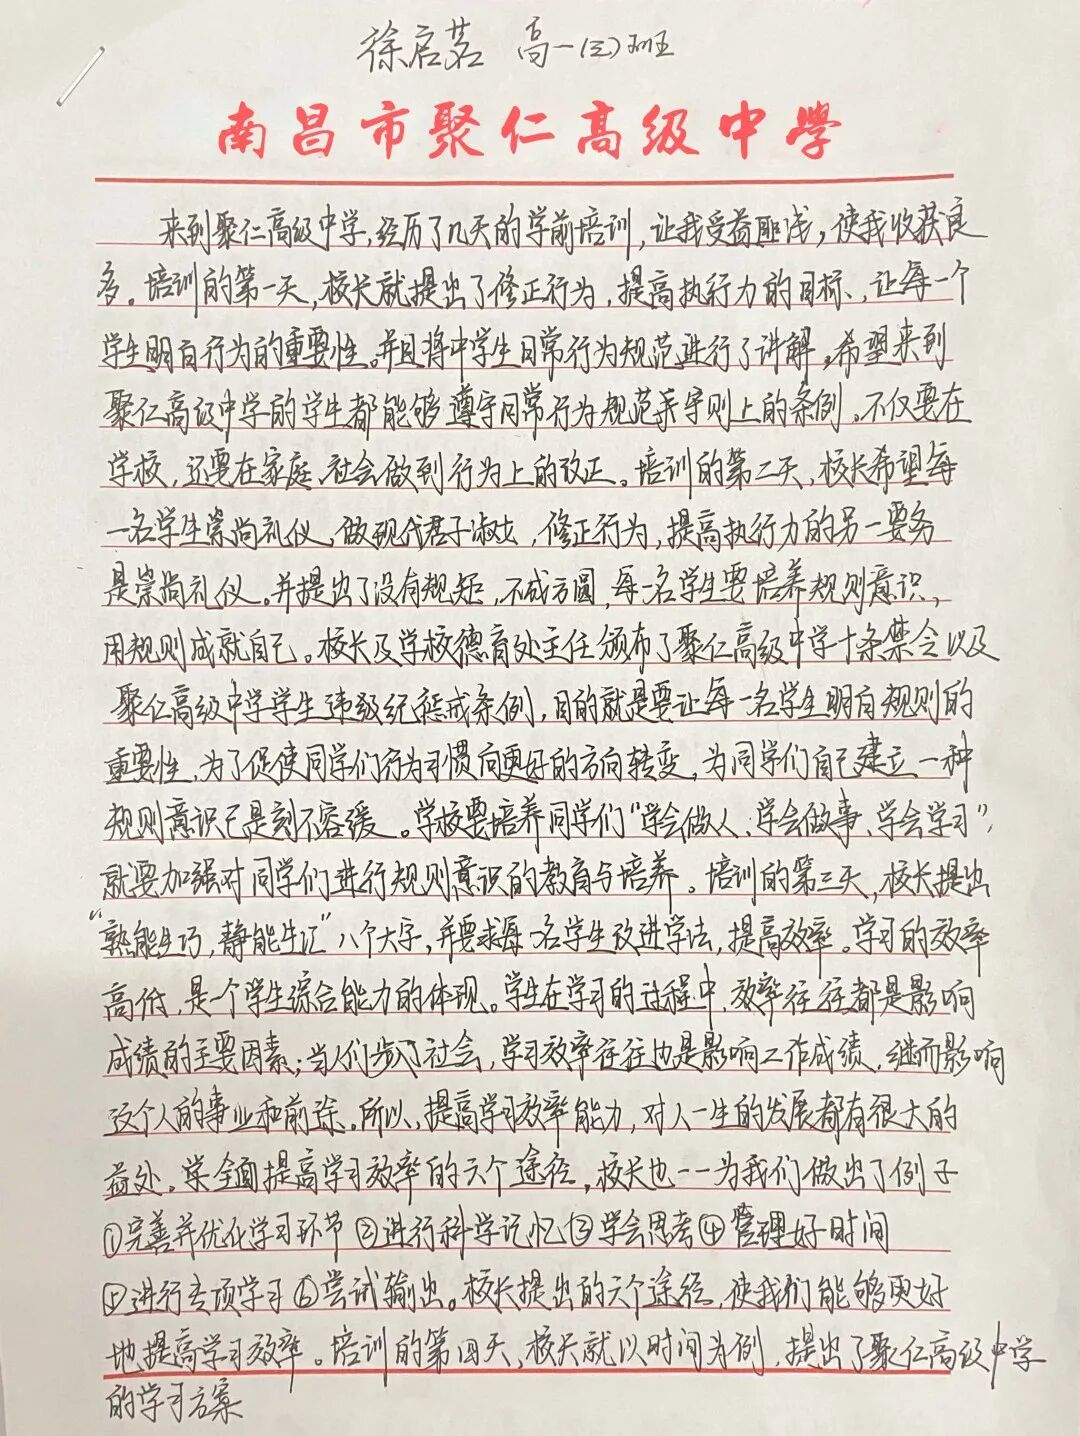 徐启茗 高一(三)班
南昌市聚仁高级中学
来到聚仁高级中学,经历了几天的学前培训,让我受益匪浅,使我收获良
多。培训的第一天,校长就提出了修正行为,提高执行力的目标、让每一个
学生明白行为的重要性。并且将中学生日常行为规范进行了讲解。希望来到
聚仁高级中学的学生都能够遵守日常行为规范条守则上的条例。不仅要在
学校,还要在家庭、社会做到行为上的改正。培训的第二天,校长希望每
一名学生崇尚礼仪,做现代君子淑女,修正行为,提高执行力的另一要务
是崇尚礼仪。并提出了没有规矩,不成方圆,每一名学生要培养规则意识,
用规则成就自己。校长及学校德育处主任颁布了聚仁高级中学十条禁令以及
聚仁高级中学学生违级纪惩戒条例,目的就是要让每一名学生明白规则的
重要性,为了促使同学们行为习惯向更好的方向转变,为同学们自己建立一种
规则意识已是刻不容缓。学校要培养同学们“学会做人、学会做事、学会学习”,
就要加强对同学们进行规则意识的教育与培养。培训的第三天,校长提出
“熟能生巧,静能生汇”八个大字,并要求每一名学生改进学法,提高效率。学习的效率
高低,是一个学生综合能力的体现。学生在学习的过程中,效率往往都是影响
成绩的主要因素;当人们步入了社会,学习效率往往也是影响工作成绩,继而影响
这个人的事业和前途。所以,提高学习效率能力,对人一生的发展都有很大的
益处。全面提高学习效率的六个途径,校长也一一为我们做出了例子
①完善并优化学习环节②进行科学记忆③学会思考④管理好时间
⑤进行专项学习⑥尝试输出。校长提出的六个途径,使我们能够更好
地提高学习效率。培训的第四天,校长就以时间为例,提出了聚仁高级中学
的学习方案